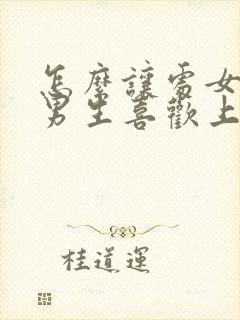 怎麼讓處女
男生喜歡上
桂道運